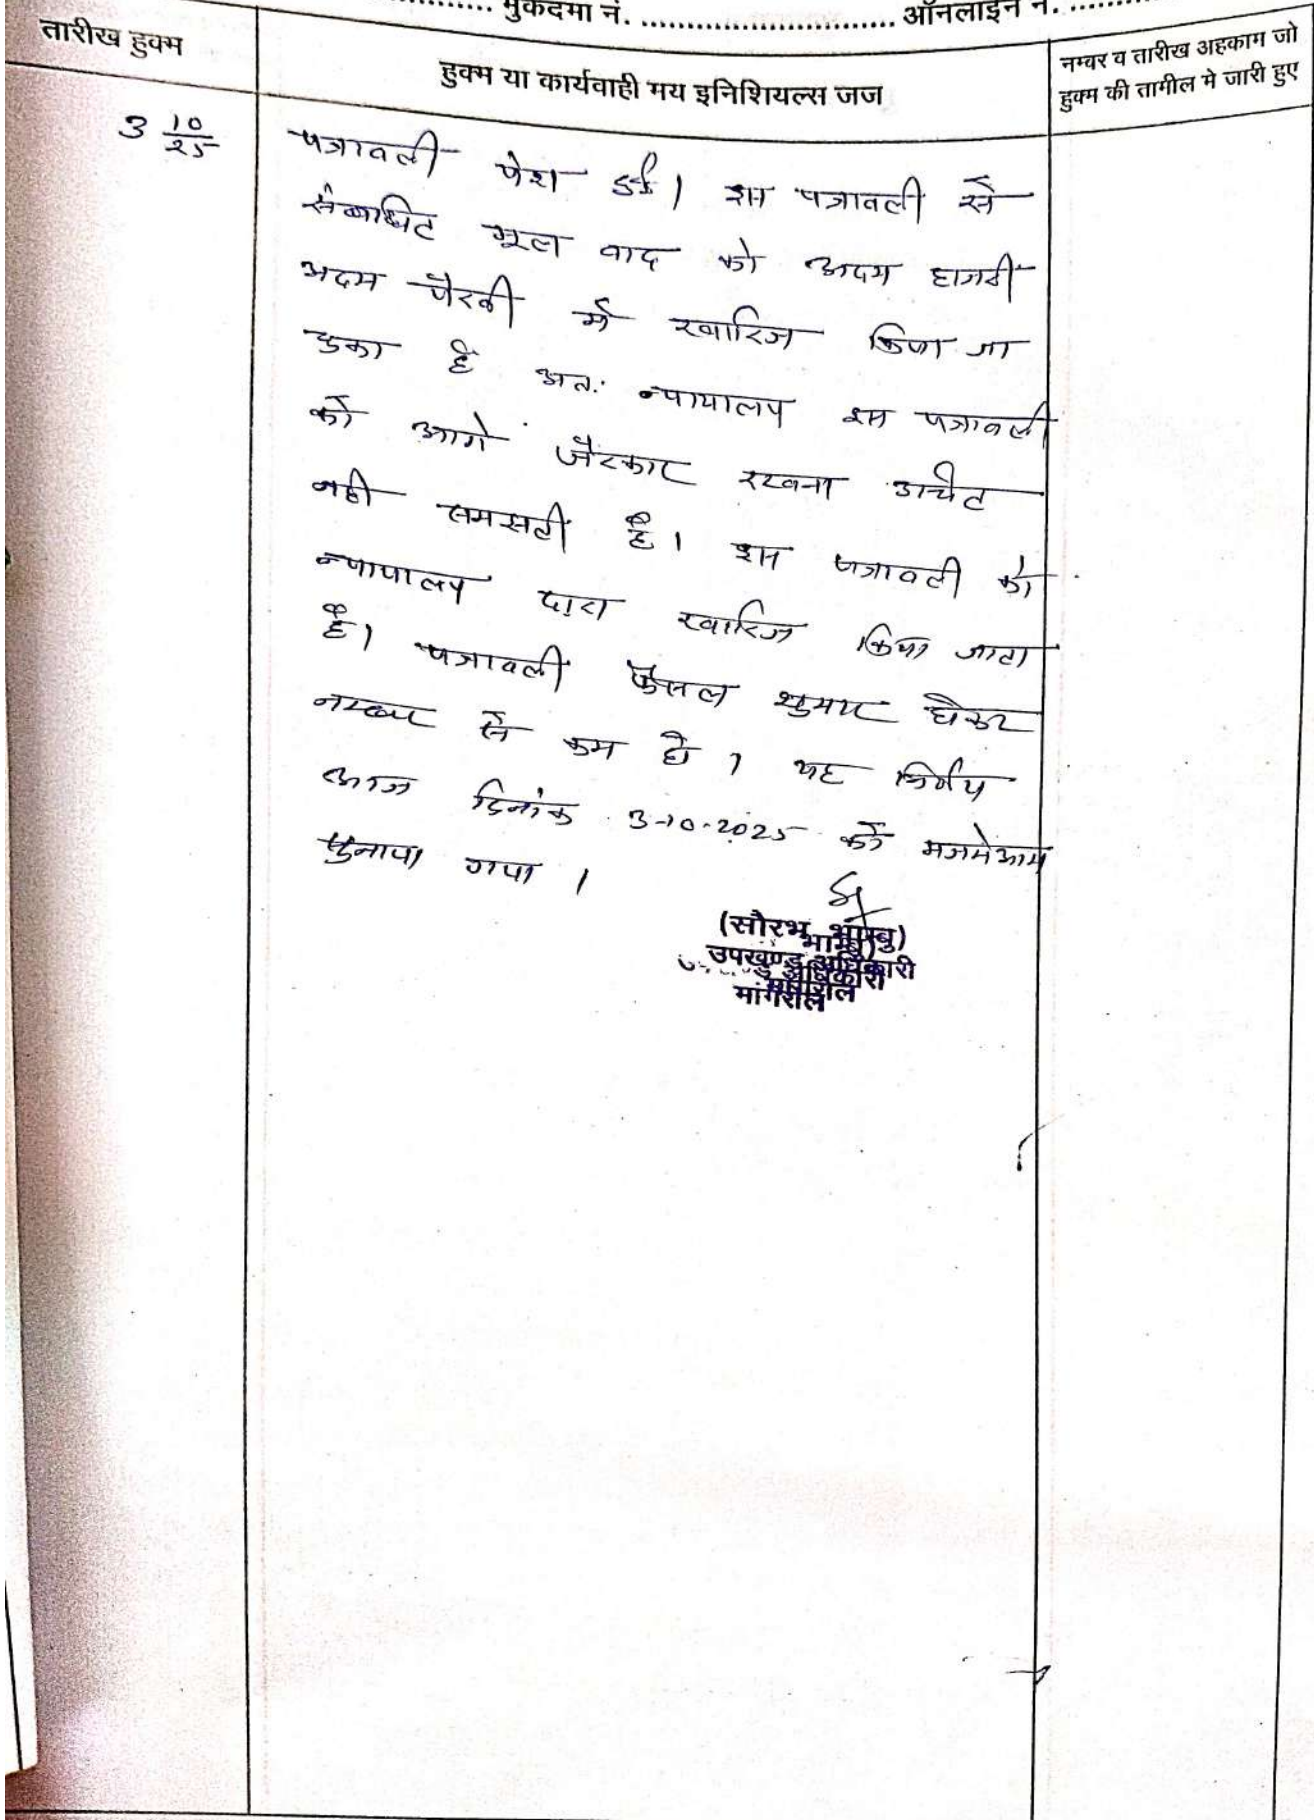 मुकदमा नं. ............................... ऑनलाइन नं. ..........
तारीख हुक्म
हुक्म या कार्यवाही मय इनिशियल्स जज
नम्बर व तारीख अहकाम जो
हुक्म की तामील मे जारी हुए
3 10/25
पत्रावली पेश हुई। इस पत्रावली से
संबंधित मूल वाद को अदम हाजरी
अदम पैरवी में खारिज किया जा
चुका है अतः न्यायालय इस पत्रावली
को आगे जैरकार रखना उचित
नही समझती है। इस पत्रावली को
न्यायालय द्वारा खारिज किया जाता
है। पत्रावली फैसल शुमार होकर
नम्बर से कम हो। यह निर्णय
आज दिनांक 3-10-2025 को मजमेआम
सुनाया गया।
(सौरभ भाम्बु)
उपखण्ड अधिकारी
मांगरोल